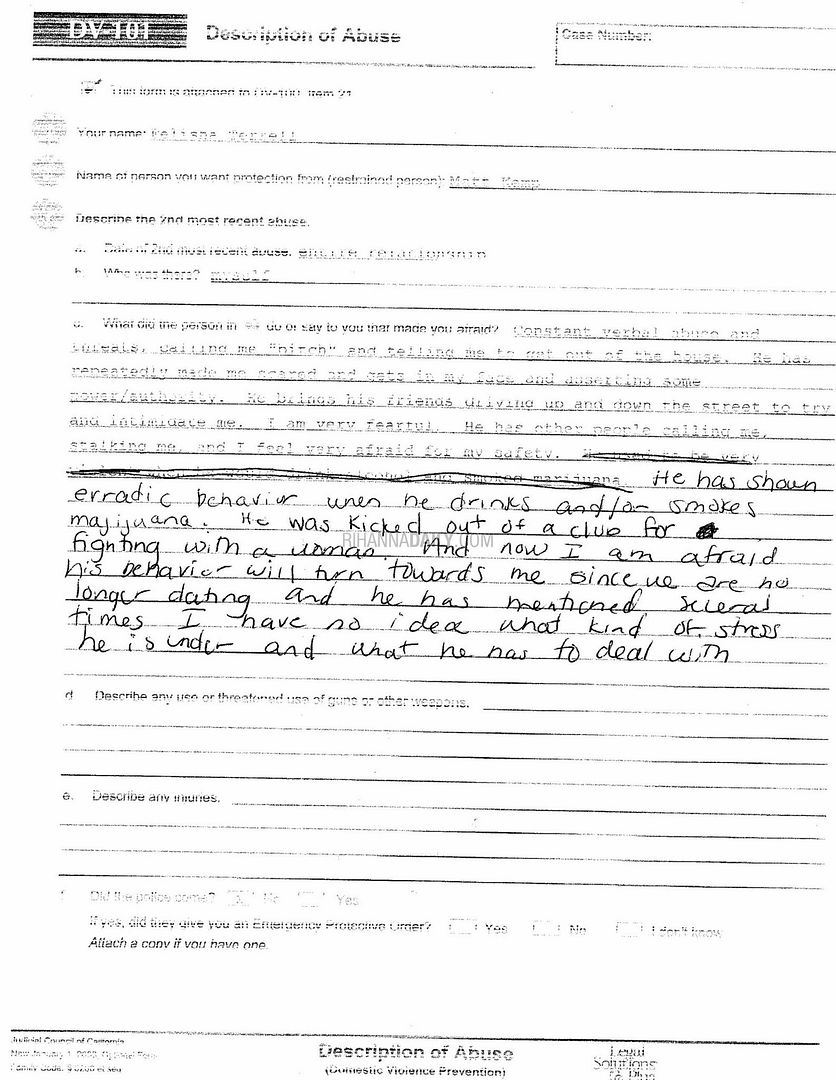 DV-101 Description of Abuse Case Number:
This form is attached to DV-100, Item 21
Your name: Felisha Terrell
Name of person you want protection from (restrained person): Matt Kemp
Describe the 2nd most recent abuse.
a. Date of 2nd most recent abuse: entire relationship
b. Who was there? myself
c. What did the person in do or say to you that made you afraid? Constant verbal abuse and
threats, calling me "bitch" and telling me to get out of the house. He has
repeatedly made me scared and gets in my face and asserting some
power/authority. He brings his friends driving up and down the street to try
and intimidate me. I am very fearful. He has other people calling me,
stalking me, and I feel very afraid for my safety. to be very
alcohol and smoked marijuana. He has shown
erradic behavior when he drinks and/or smokes
majijuana. He was kicked out of a club for
RIHANNADAILY.COM
fighting with a woman. And now I am afraid
his behavior will turn towards me since we are no
longer dating and he has mentioned several
times I have no idea what kind of stress
he is under and what he has to deal with
d. Describe any use or threatened use of guns or other weapons.
e. Describe any injuries.
f. Did the police come? No Yes
If yes, did they give you an Emergency Protective Order? Yes No I don't know
Attach a copy if you have one.
Judicial Council of California
Family Code, § 6200 et seq.
Description of Abuse
(Domestic Violence Prevention)
Legal
Solutions
Plus